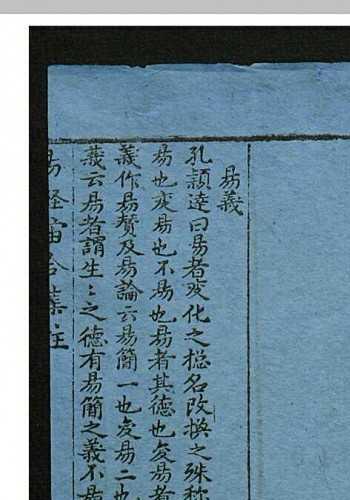 易義
孔頴達曰易者变化之摠名改換之殊称
易也变易也不易也易者其德也变易者
義作易賛及易論云易簡一也变易二也
義云易者謂生〻之德有易簡之義不易
易經
集註